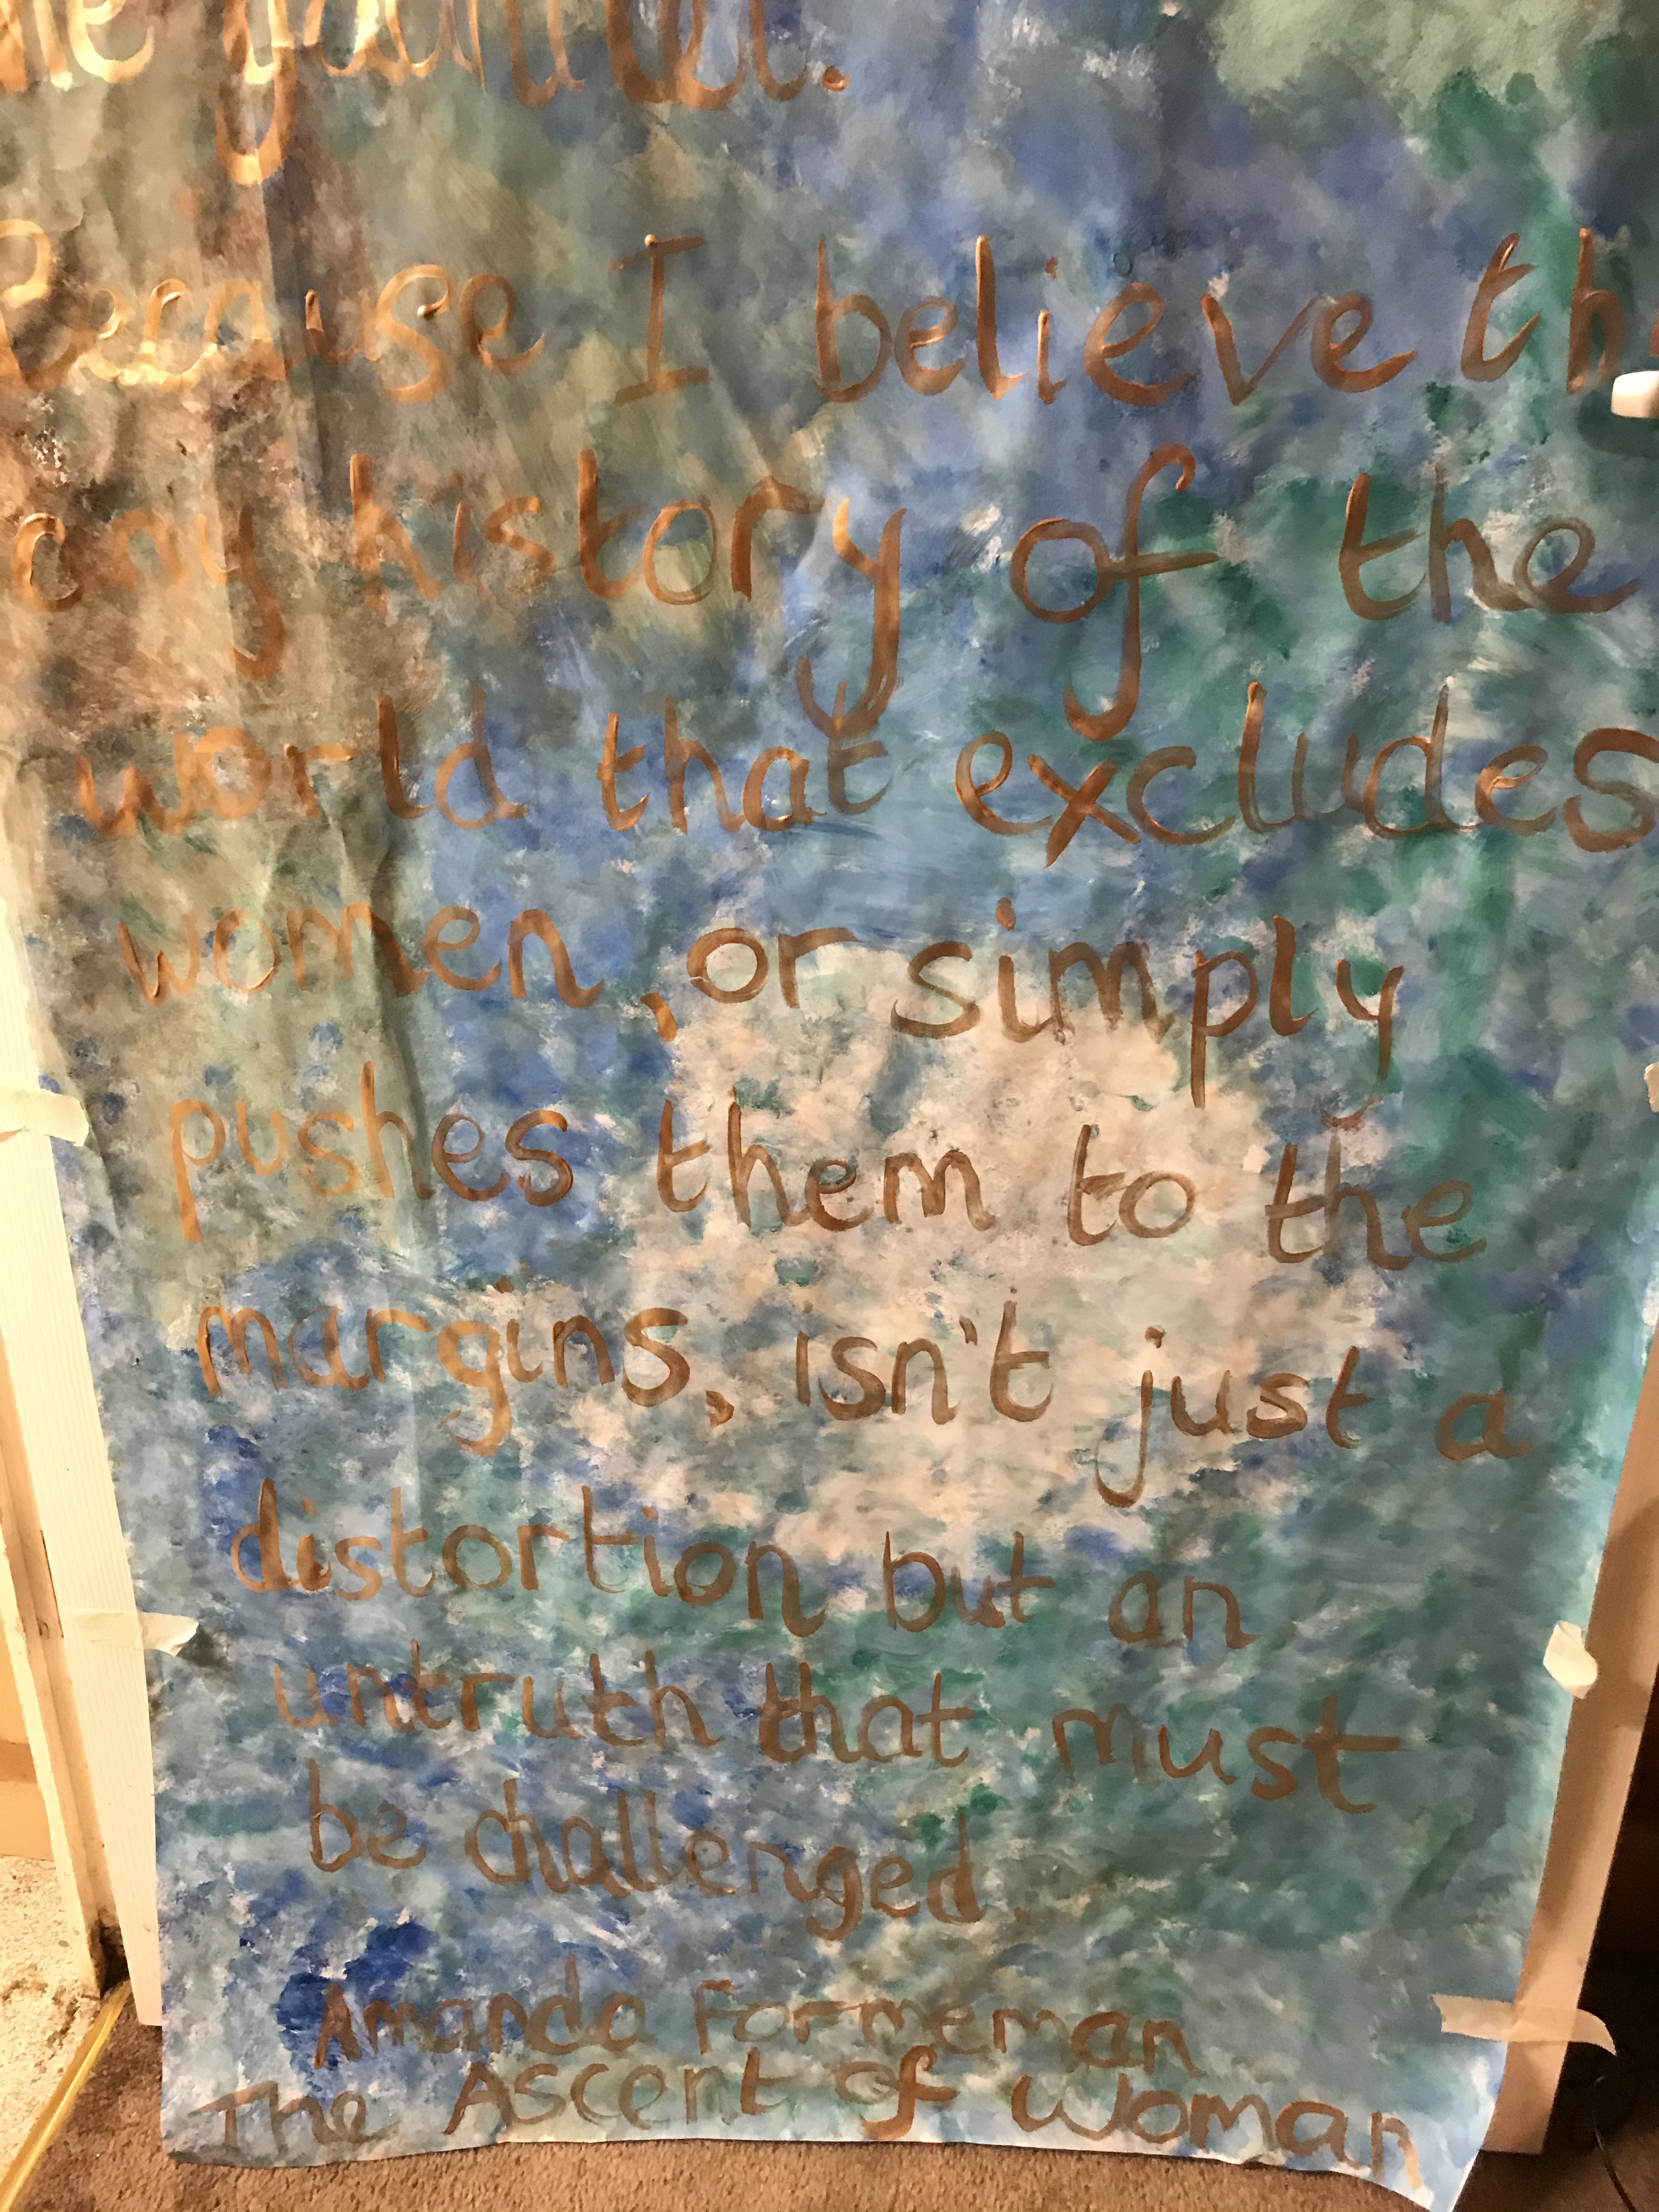 Because I believe th
any history of the
world that excludes
women, or simply
pushes them to the
margins, isn't just a
distortion but an
untruth that must
be challenged.
Amanda Formeman
The Ascent of Woman